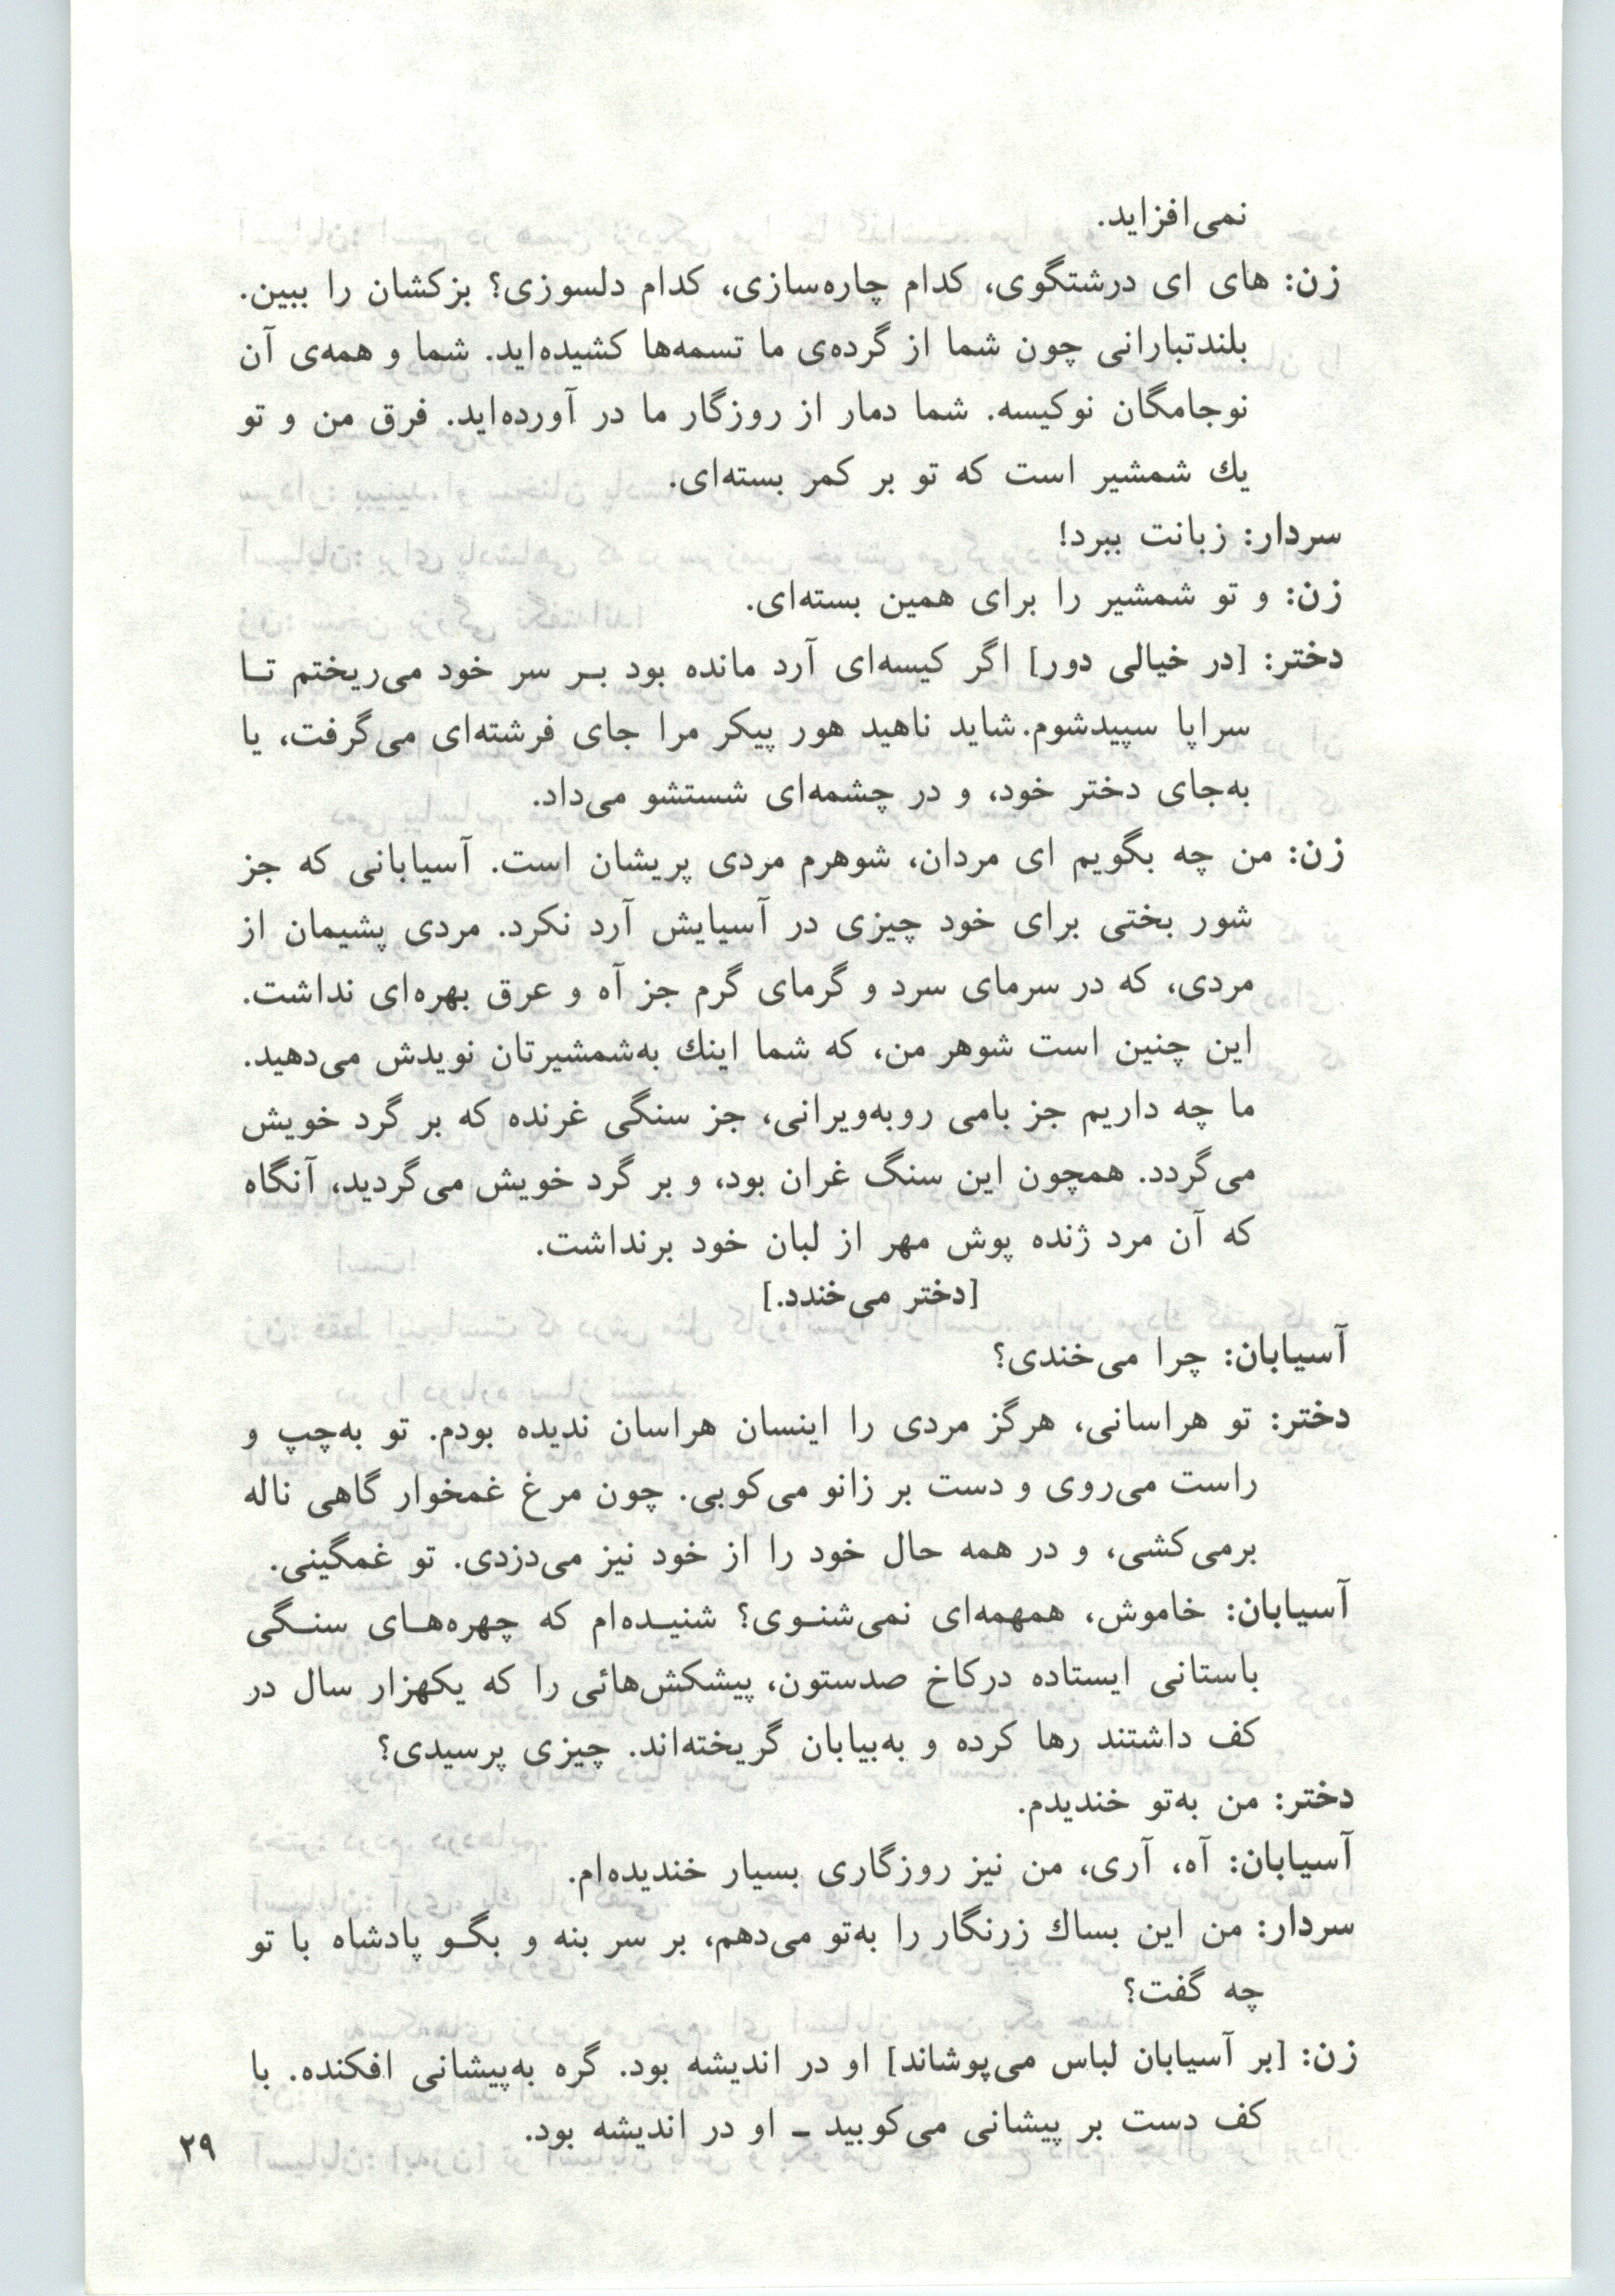 نمی‌افزاید.
زن: های ای درشتگوی، کدام چاره‌سازی، کدام دلسوزی؟ بزکشان را ببین.
بلندتبارانی چون شما از گرده‌ی ما تسمه‌ها کشیده‌اید. شما و همه‌ی آن
نوجامگان نوکیسه. شما دمار از روزگار ما در آورده‌اید. فرق من و تو
یك شمشیر است که تو بر کمر بسته‌ای.
سردار: زبانت ببرد!
زن: و تو شمشیر را برای همین بسته‌ای.
دختر: [در خیالی دور] اگر کیسه‌ای آرد مانده بود بـر سر خود می‌ریختم تـا
سراپا سپیدشوم. شاید ناهید هور پیکر مرا جای فرشته‌ای می‌گرفت، یا
به‌جای دختر خود، و در چشمه‌ای شستشو می‌داد.
زن: من چه بگویم ای مردان، شوهرم مردی پریشان است. آسیابانی که جز
شور بختی برای خود چیزی در آسیایش آرد نکرد. مردی پشیمان از
مردی، که در سرمای سرد و گرمای گرم جز آه و عرق بهره‌ای نداشت.
این چنین است شوهر من، که شما اینك به‌شمشیرتان نویدش می‌دهید.
ما چه داریم جز بامی روبه‌ویرانی، جز سنگی غرنده که بر گرد خویش
می‌گردد. همچون این سنگ غران بود، و بر گرد خویش می‌گردید، آنگاه
که آن مرد ژنده پوش مهر از لبان خود برنداشت.
[دختر می‌خندد.]
آسیابان: چرا می‌خندی؟
دختر: تو هراسانی، هرگز مردی را اینسان هراسان ندیده بودم. تو به‌چپ و
راست می‌روی و دست بر زانو می‌کوبی. چون مرغ غمخوار گاهی ناله
برمی‌کشی، و در همه حال خود را از خود نیز می‌دزدی. تو غمگینی.
آسیابان: خاموش، همهمه‌ای نمی‌شنـوی؟ شنیـده‌ام که چهره‌هـای سنـگی
باستانی ایستاده درکاخ صدستون، پیشکش‌هائی را که یکهزار سال در
کف داشتند رها کرده و به‌بیابان گریخته‌اند. چیزی پرسیدی؟
دختر: من به‌تو خندیدم.
آسیابان: آه، آری، من نیز روزگاری بسیار خندیده‌ام.
سردار: من این بساك زرنگار را به‌تو می‌دهم، بر سر بنه و بگـو پادشاه با تو
چه گفت؟
زن: [بر آسیابان لباس می‌پوشاند] او در اندیشه بود. گره به‌پیشانی افکنده. با
کف دست بر پیشانی می‌کوبید ـ او در اندیشه بود.
۲۹